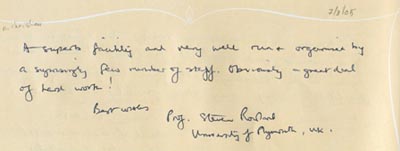 7/3/05
A superb facility and very well run & organised by
a surprisingly few number of staff. Obviously a great deal
of hard work!
Best wishes
Prof. Steven Rowland
University of Plymouth, UK.